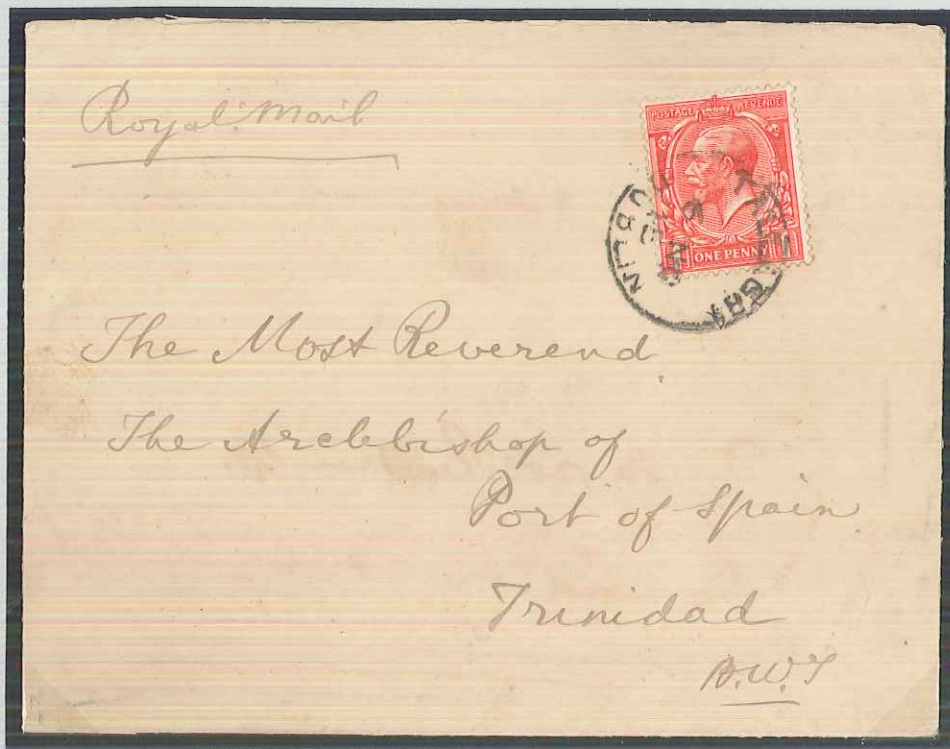 Royal Mail
POSTAGE REVENUE
ONE PENNY
DUBLIN
The Most Reverend
The Archbishop of
Port of Spain
Trinidad
B.W.I